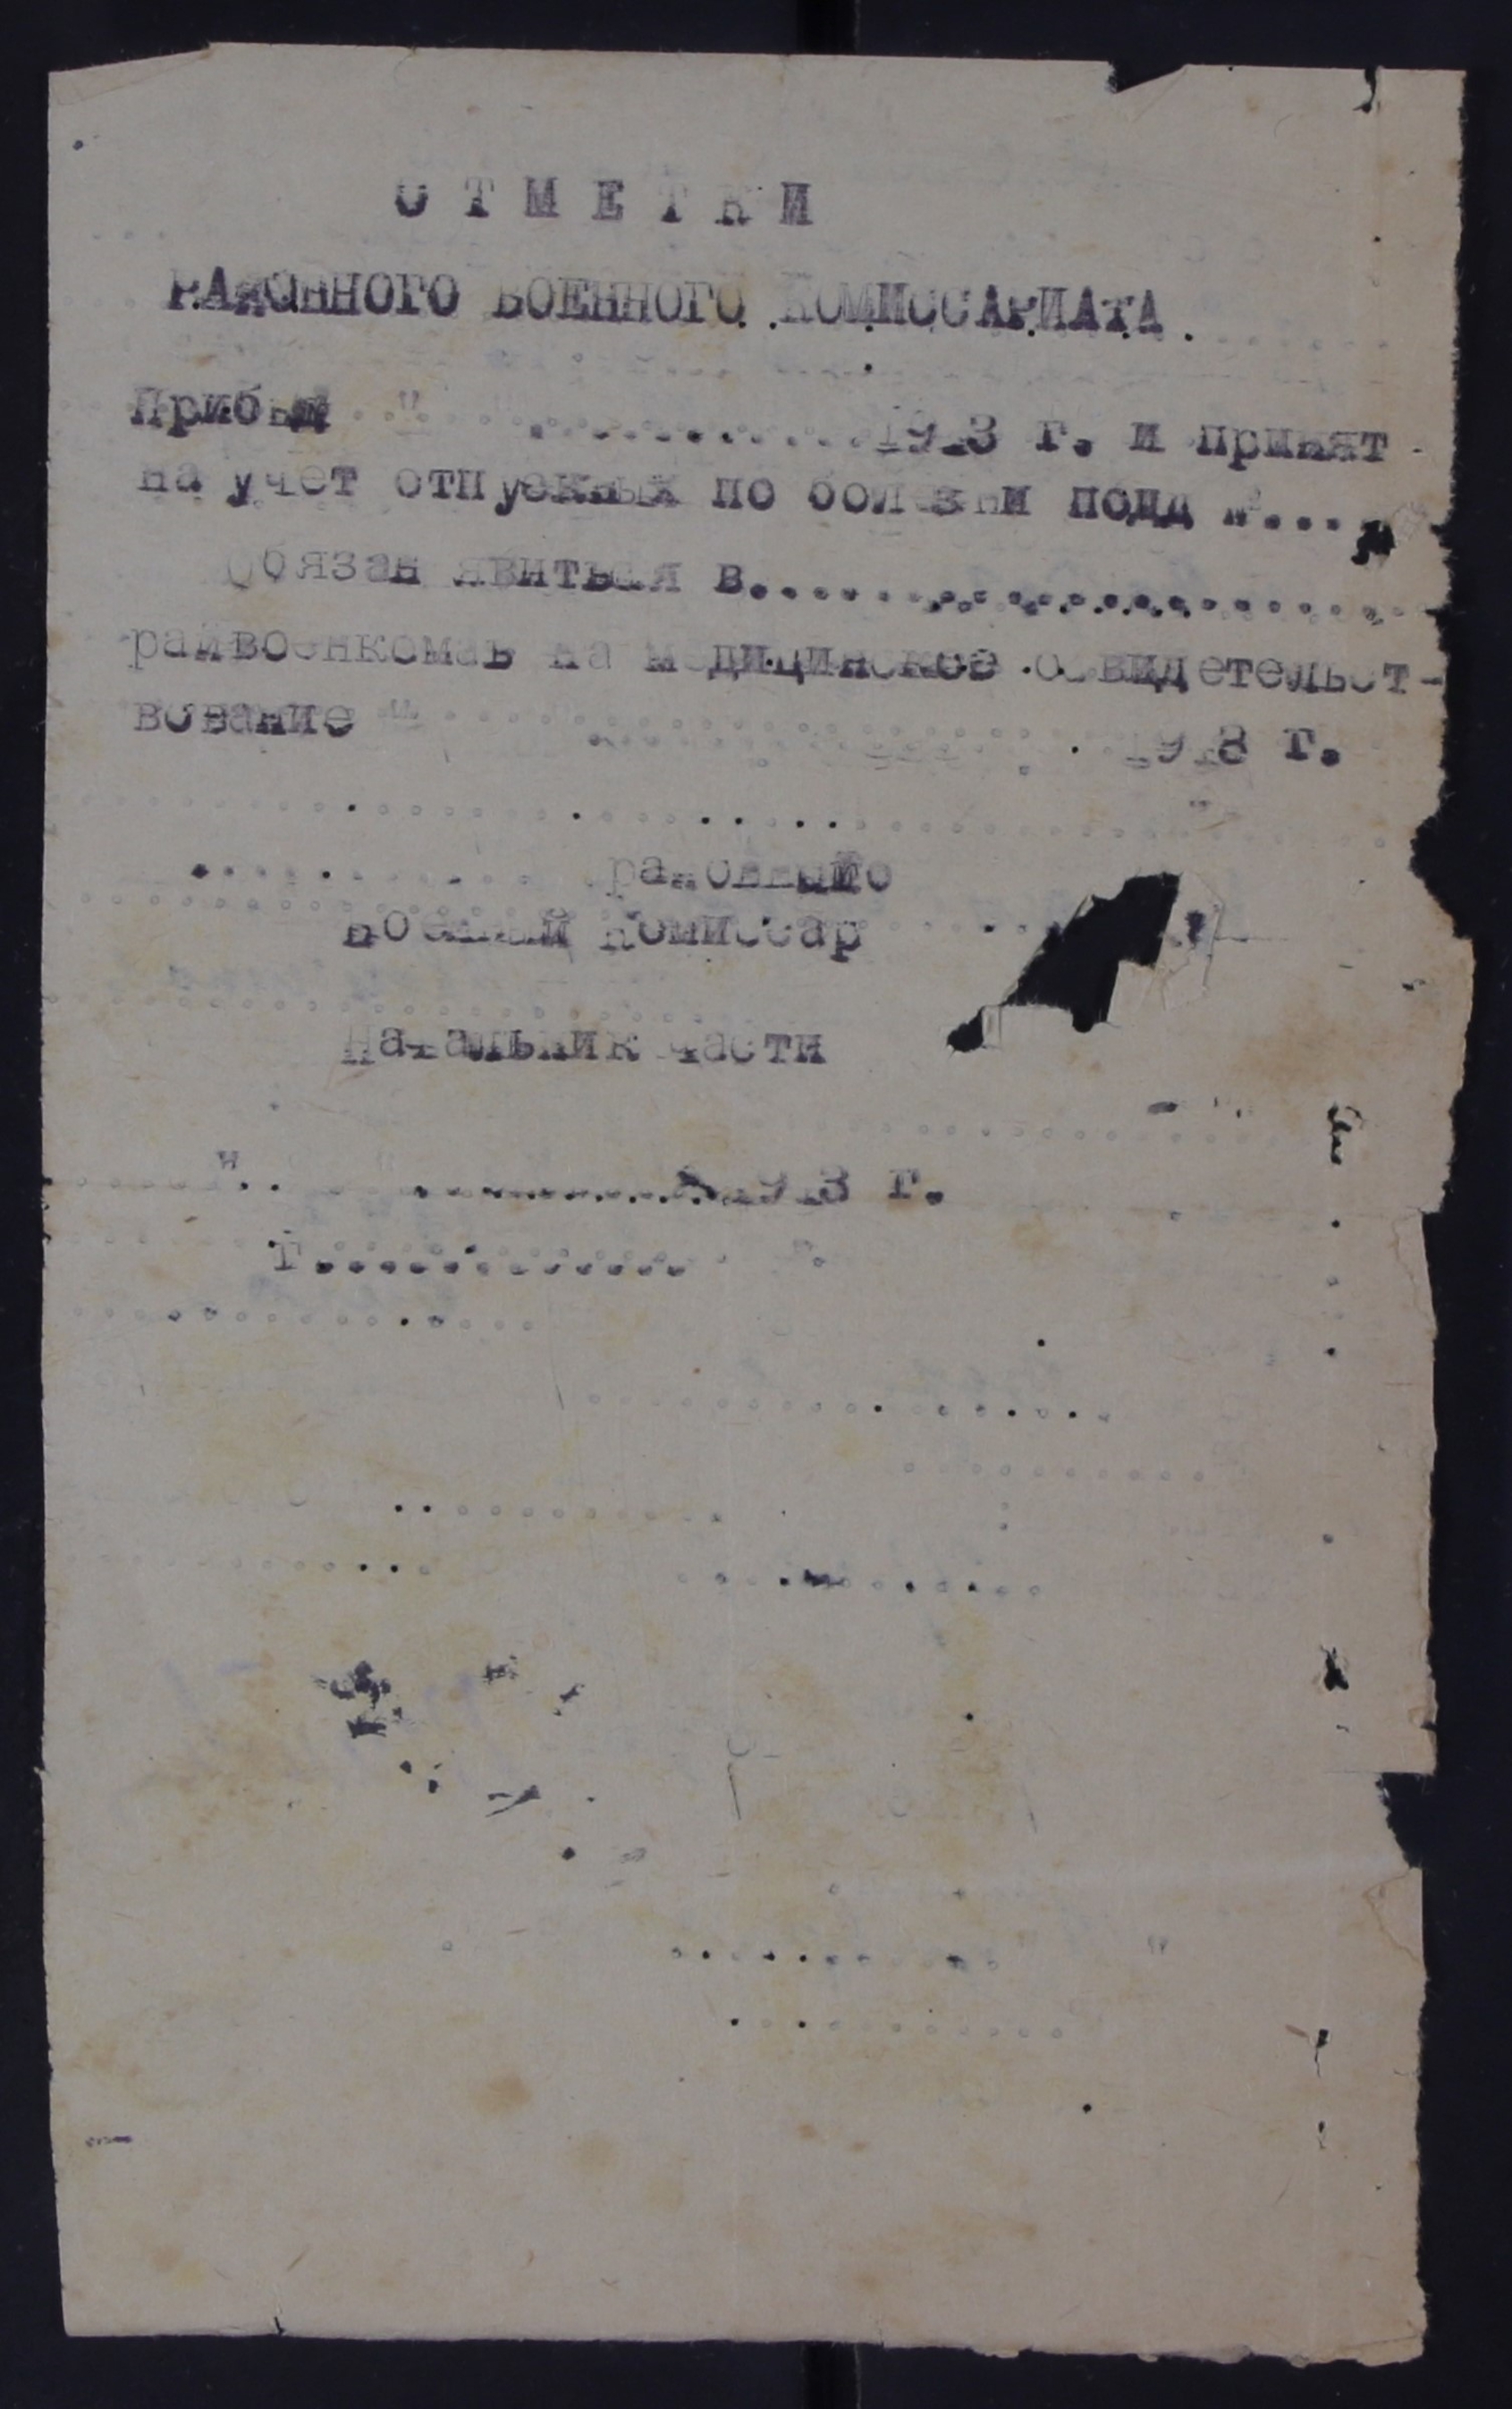 ОТМЕТКИ
РАЙОННОГО ВОЕННОГО КОМИССАРИАТА.
Прибыл " ...........1943 г. и принят
на учет отпускных по болезни подд №....
Обязан явиться в......................
райвоенкомат на медицинское освидетельст-
вование " ............ 1943 г.
............ районного
Военный комиссар
Начальник части
".. ..........1943 г.
Г............